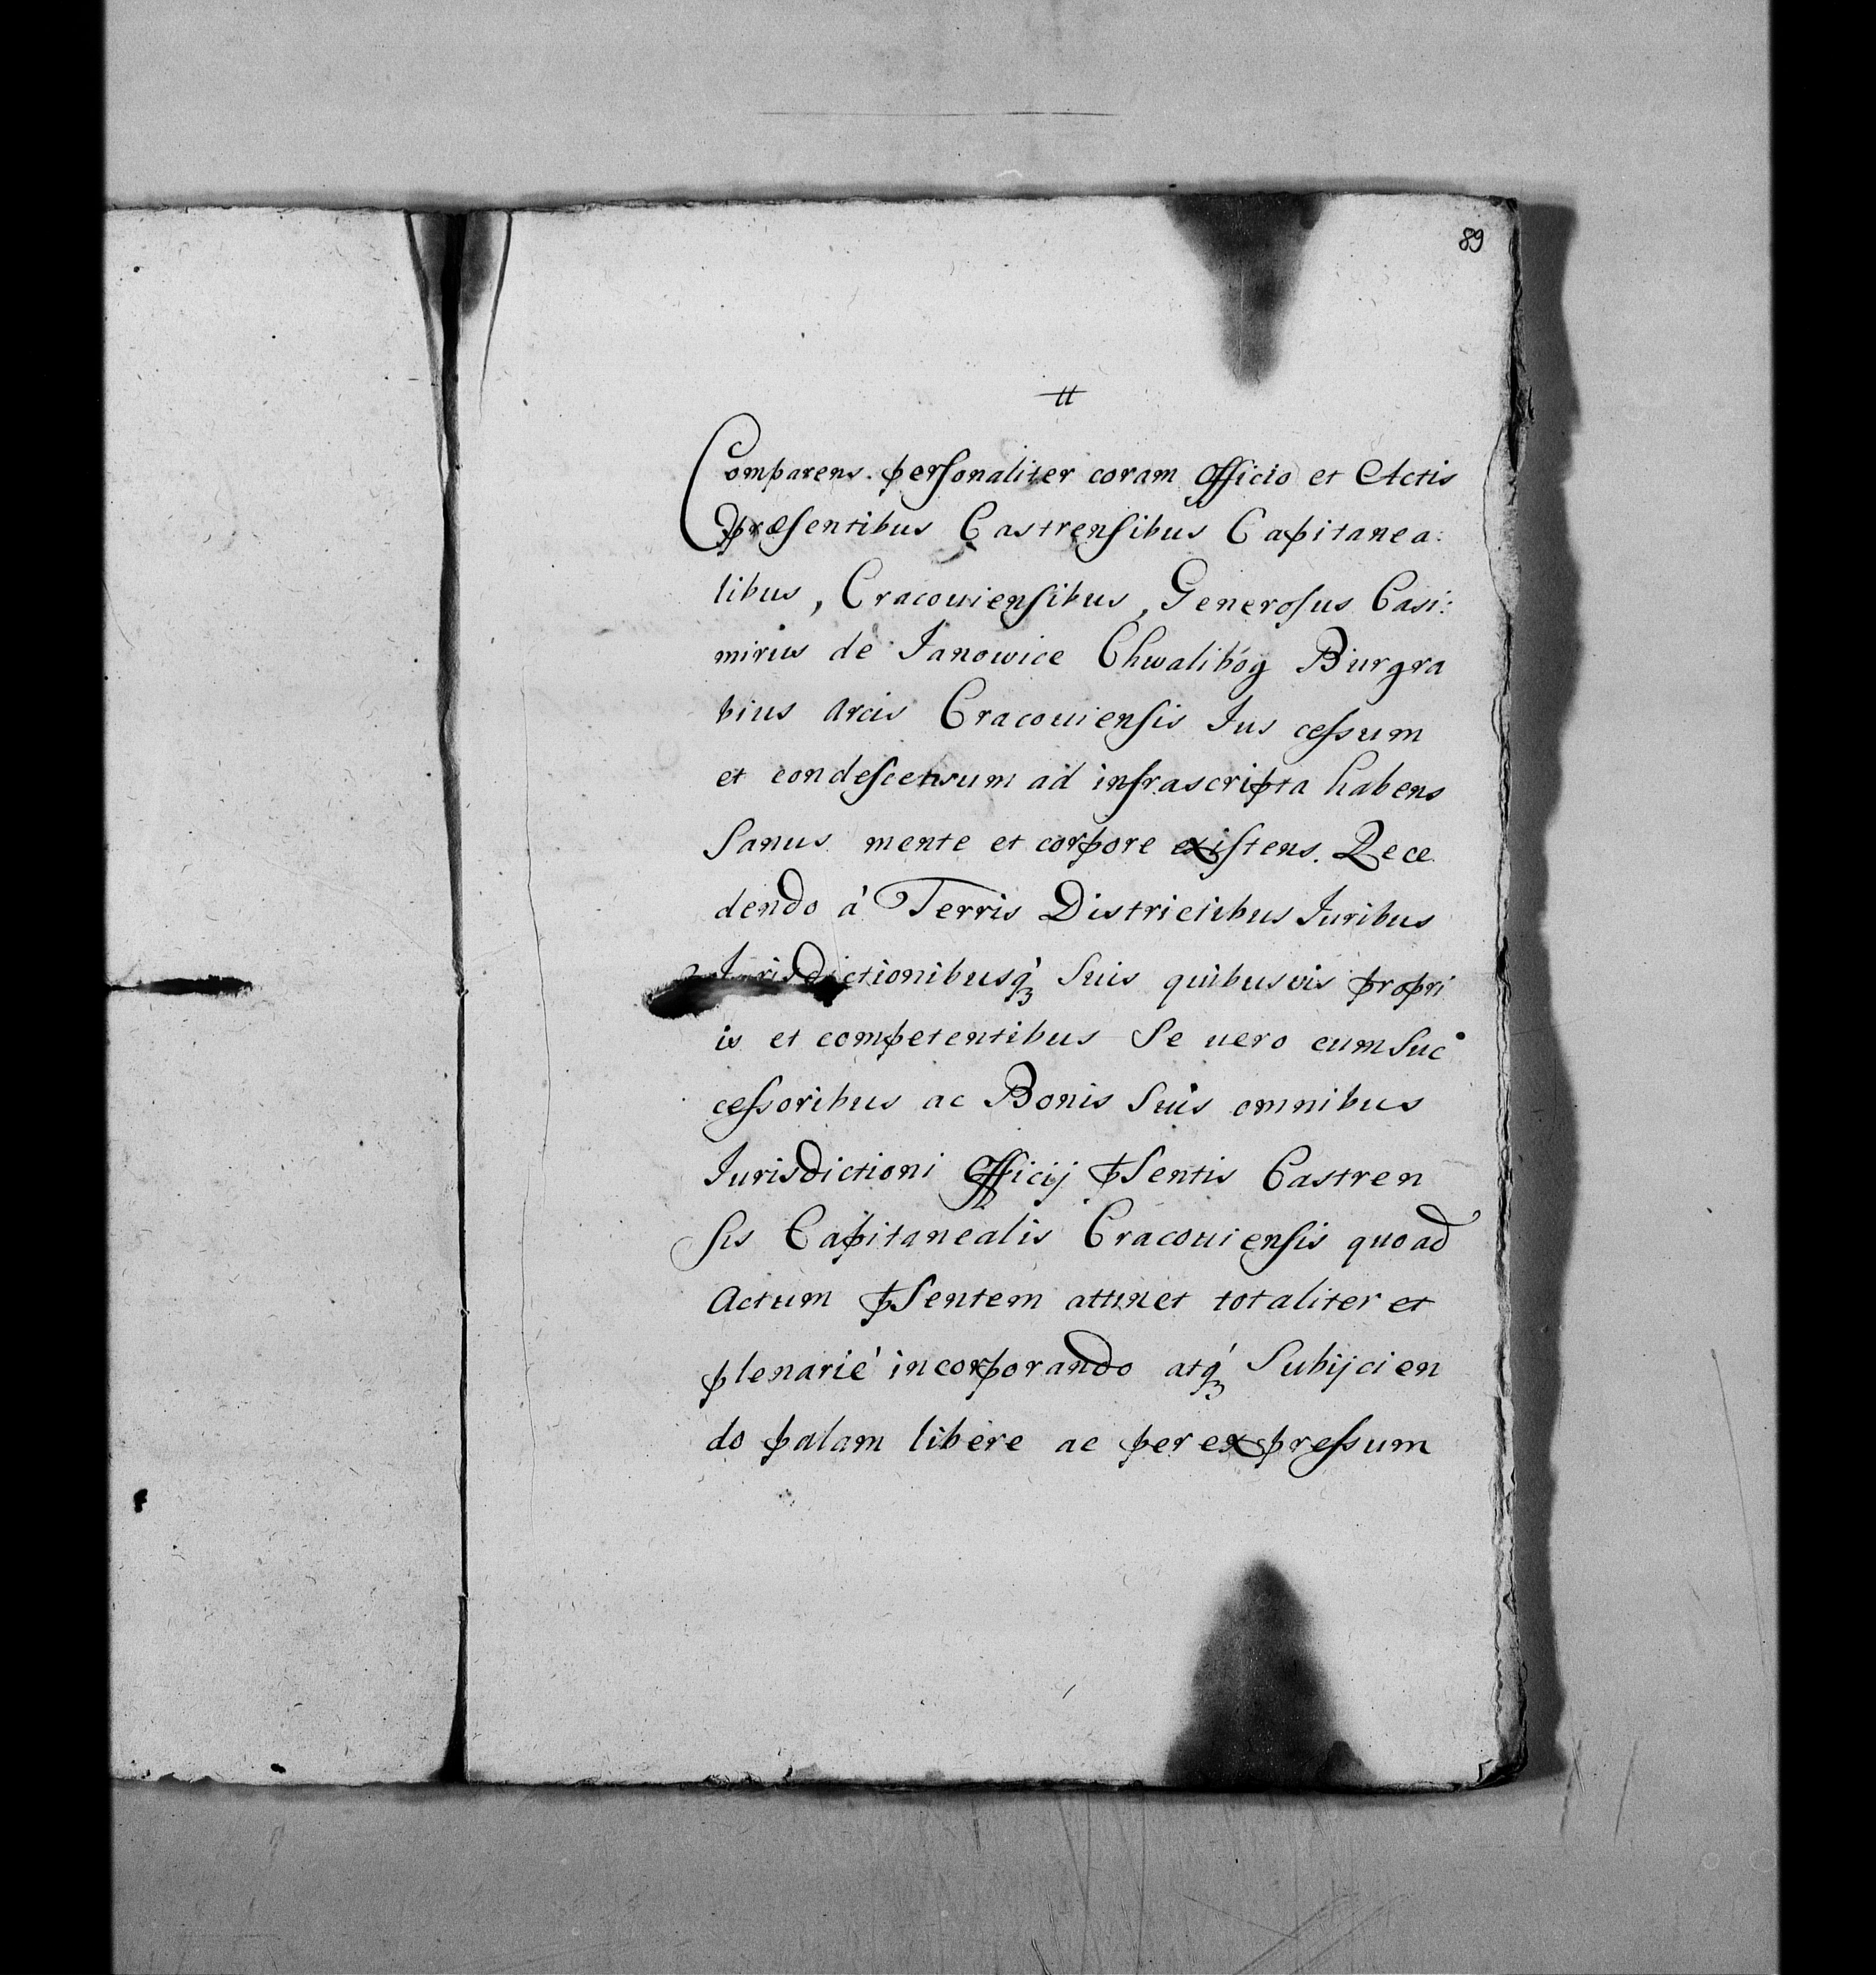 89
#
Comparens personaliter coram Officio et Actis
præsentibus Castrensibus Capitanea:
libus, Cracouiensibus, Generosus Casi:
mirus de Janowice Chwalibóg Burgra
bius Arcis Cracouiensis Jus cessum
et condescensum ad infrascripta habens
Sanus mente et corpore existens. Rece
dendo à Terris Districtibus Juribus
Jurisdictionibusq́ꝫ Suis quibusvis propri
is et competentibus Se uero cum Suc
cessoribus ac Bonis Suis omnibus
Jurisdictioni Officij ꝑSentis Castren
sis Capitanealis Cracouiensis quoad
Actum ꝑSentem attinet totaliter et
plenarié incorporando atq́ꝫ Subijcien
do palam libere ac per expressum